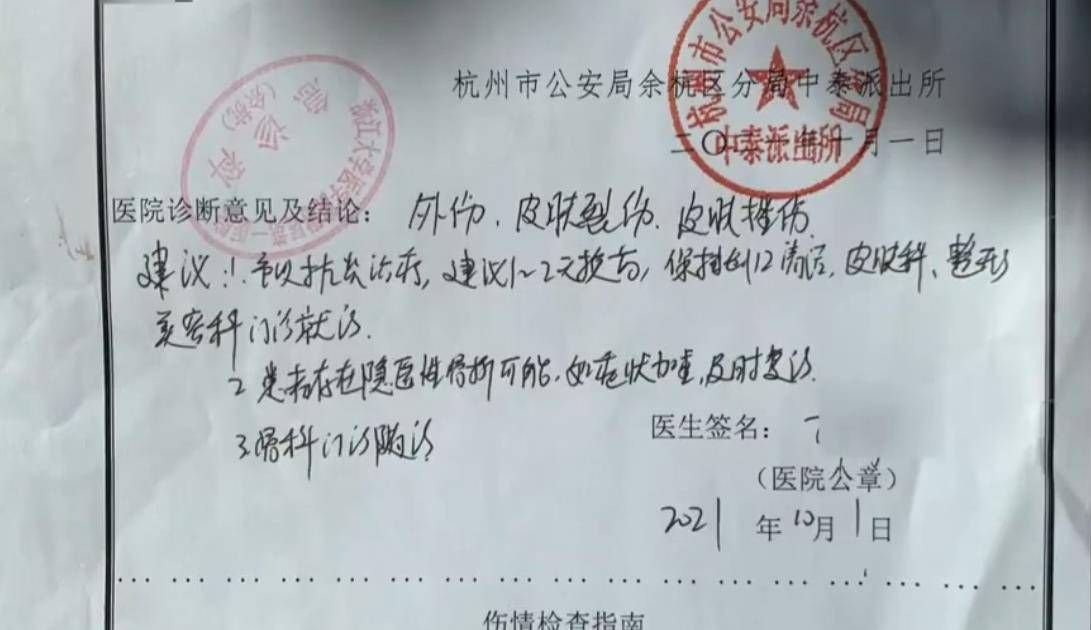 杭州市公安局余杭区分局中泰派出所
二〇二一年十月一日
杭州市公安局余杭区分局
中泰派出所
浙江大学医学院附属第一医院
急诊科
(余杭)
医院诊断意见及结论: 外伤. 皮肤裂伤. 皮肤挫伤.
建议: 1. 予以抗炎治疗, 建议1~2天换药, 保持创口清洁, 皮肤科、整形
美容科门诊就诊.
2 患者存在隐匿性骨折可能, 如症状加重, 及时复诊.
3.骨科门诊随诊
医生签名:
(医院公章)
2021年10月1日
伤情检查指南